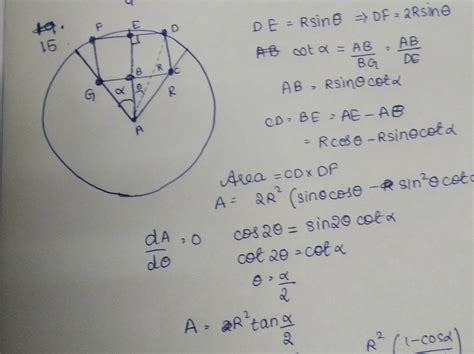 15
F E D
R
B
C
G α θ R
A
DE = Rsinθ ⇒ DF = 2Rsinθ
cot α = AB/BG = AB/DE
AB = Rsinθcotα
CD = BE = AE - AB
= Rcosθ - Rsinθcotα
Area = CD×DF
A = 2R² (sinθcosθ - sin²θcotα
dA/dθ = 0 cos2θ = sin2θ cotα
cot2θ = cotα
θ = α/2
A = R² tan α/2
R² (1-cosα)